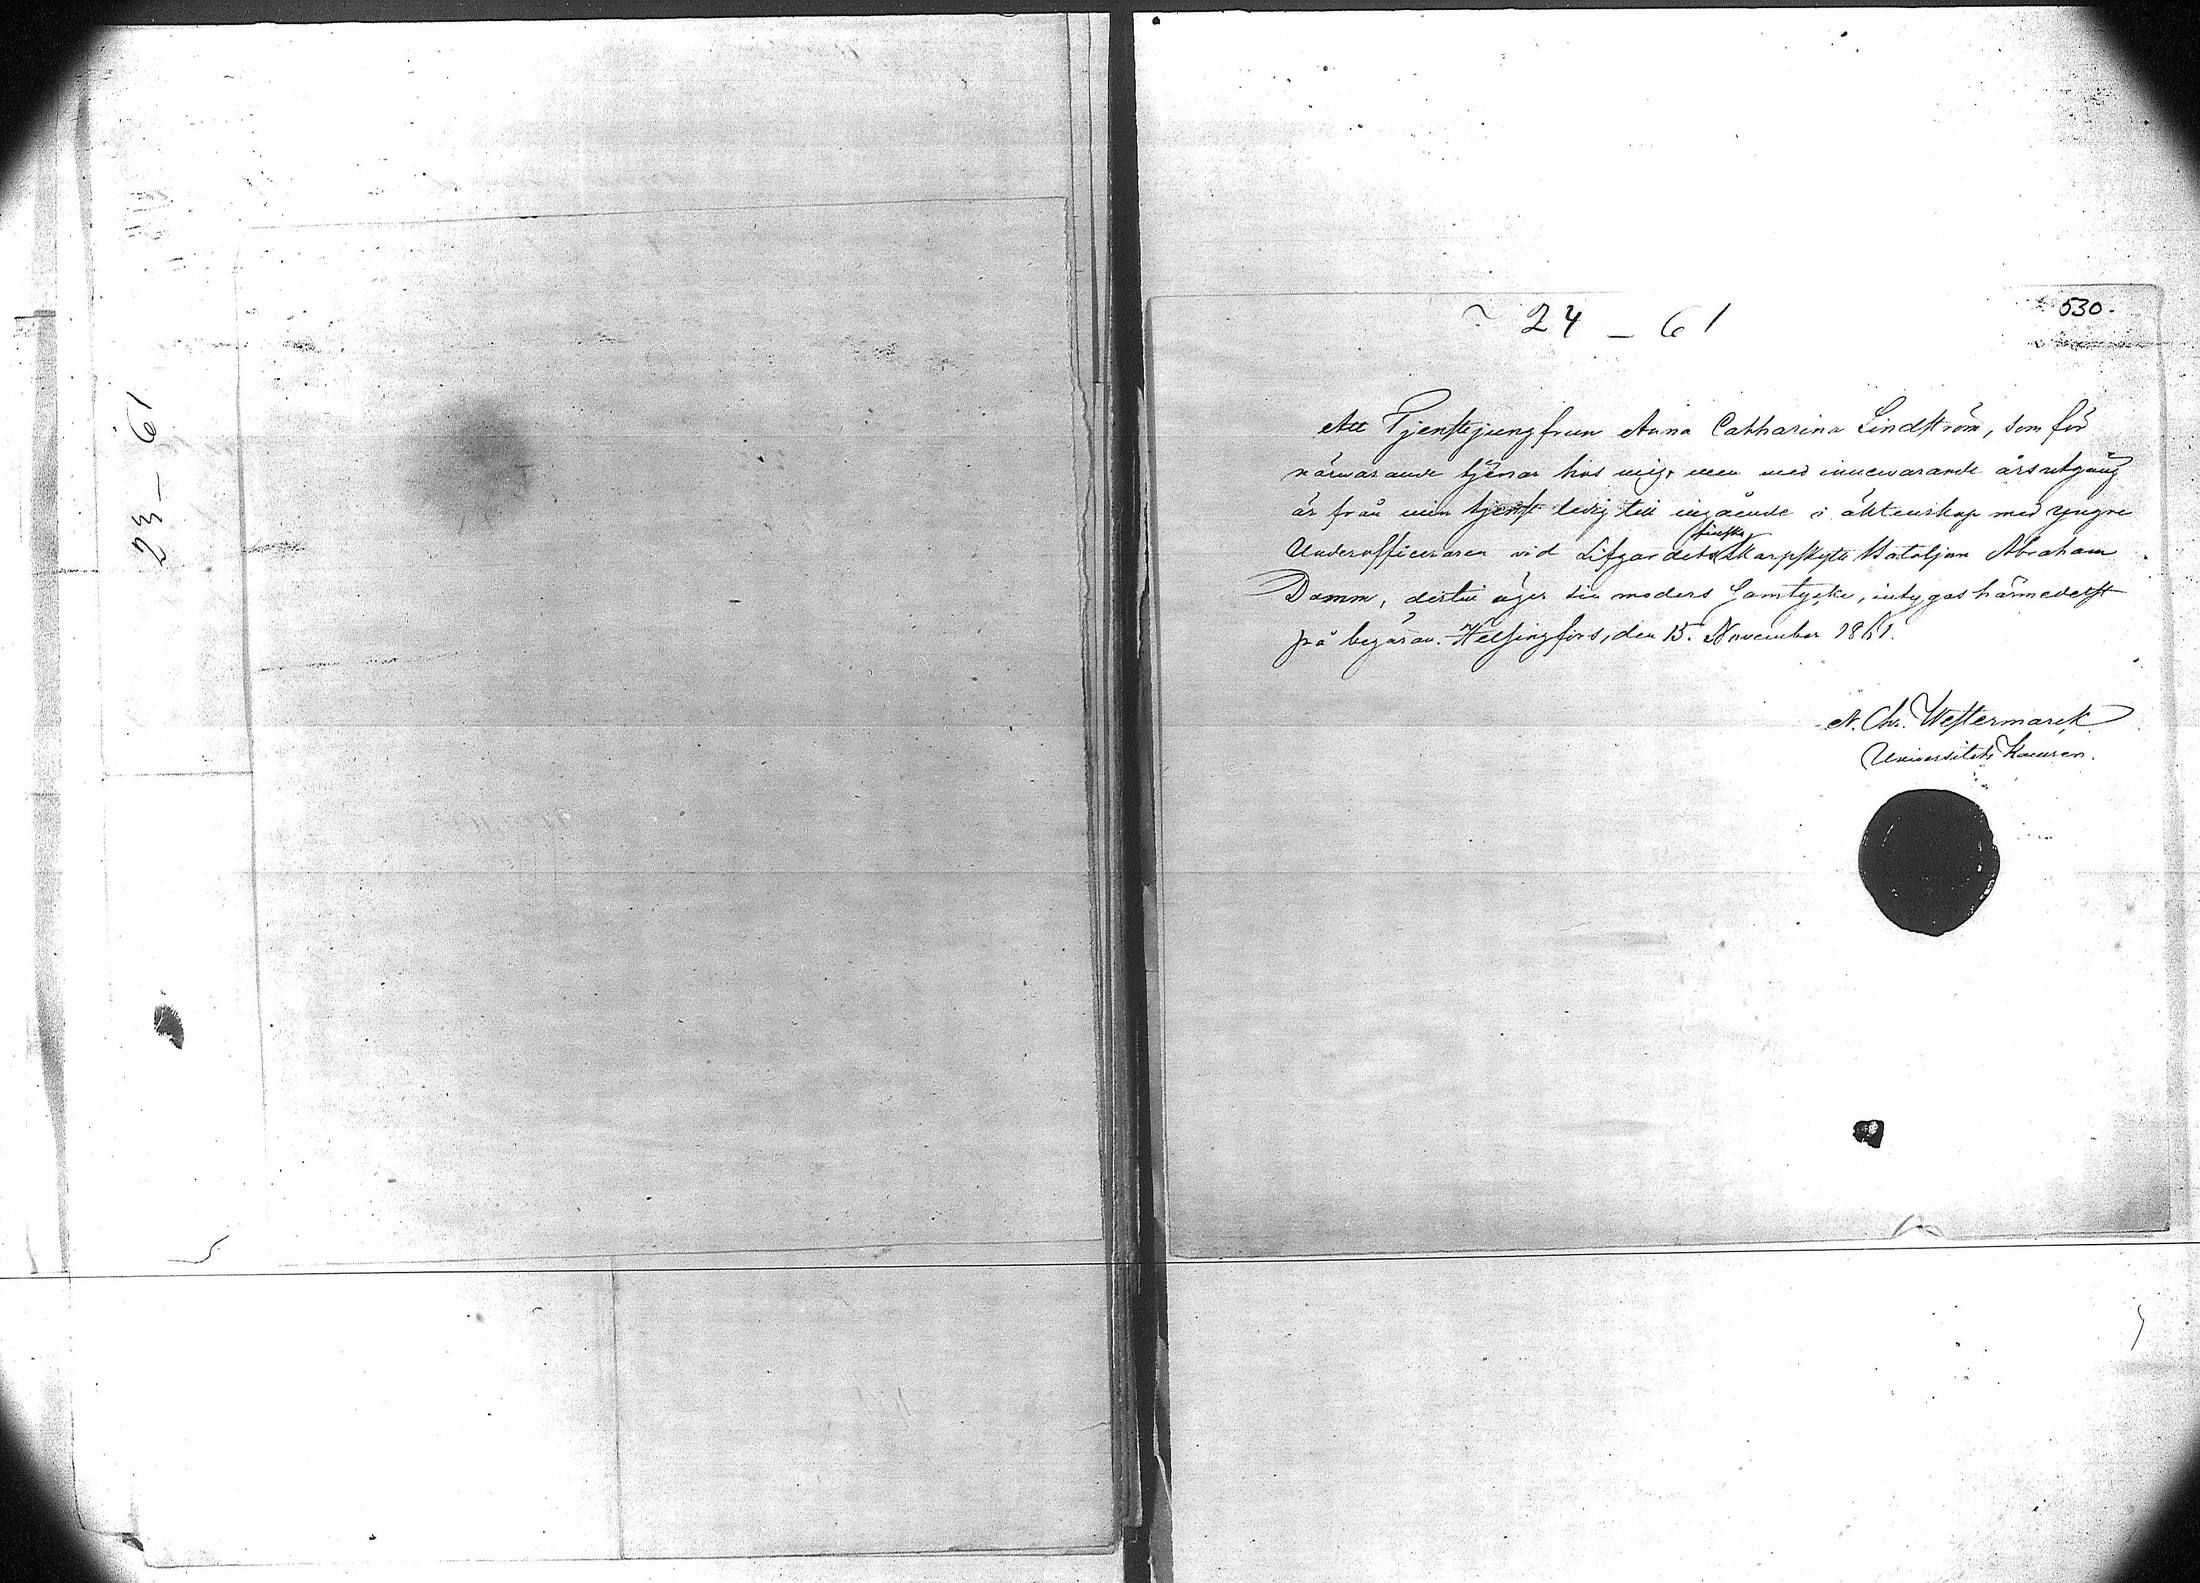 23 – 61
24 – 61
530.
Att Tjenstejungfrun Anna Catharina Lindström, som för
närwarande tjenar hos mig, men med innewarande årsutgång
är från min tjenst ledig till ingående i äktenskap med yngre
Underofficeraren vid Lifgardets finska Skarpskytte Bataljon Abraham
Damm, dertill äger sin moders Samtycke, intygas härmedelst
på begäran. Helsingfors, den 15. November 1861.
N. Chr. Westermarck
Universitets Kamrer.